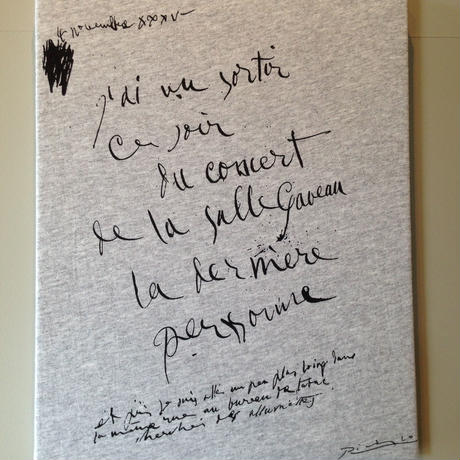 4 novembre XXXV
j'ai vu sortir
ce soir
du concert
de la salle Gaveau
la dernière
personne
et puis je suis allé un peu plus loing dans
la même rue au bureau de tabac
chercher des allumettes
Picasso